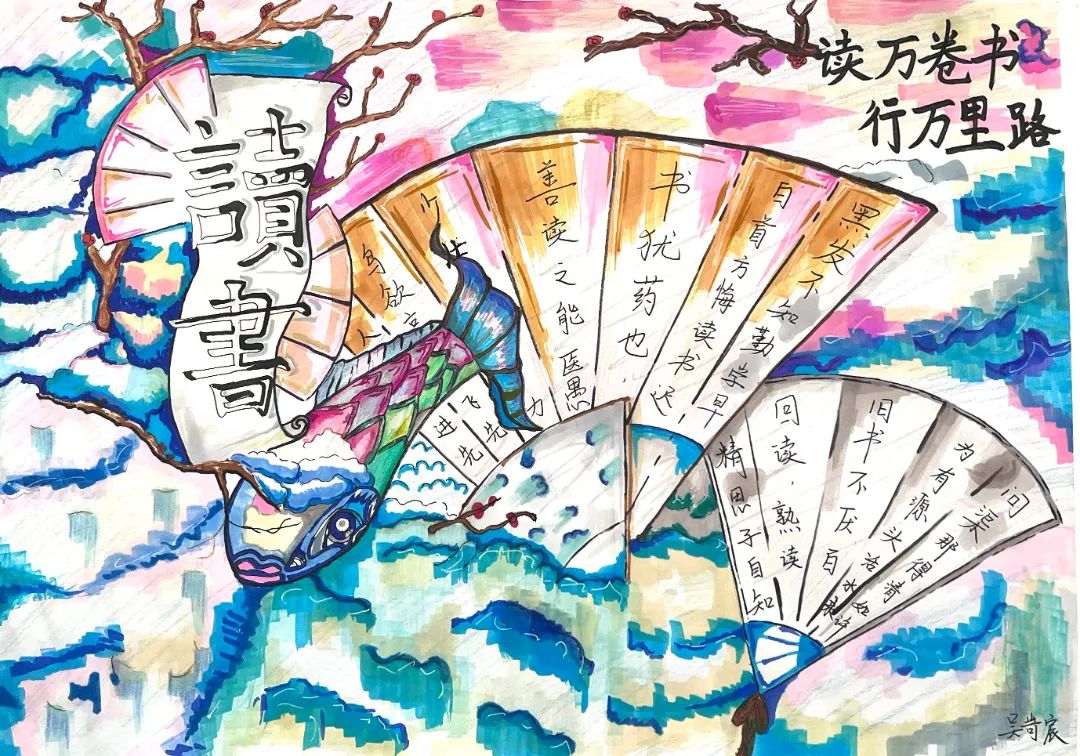 读万卷书
行万里路
讀書
黑发不知勤学早
白首方悔读书迟
书犹药也,
善读之能医愚
少
力
鸟欲
飞先
人
进先
问渠那得清如许
为有源头活水来
旧书不厌百
回读,熟读
精思子自知